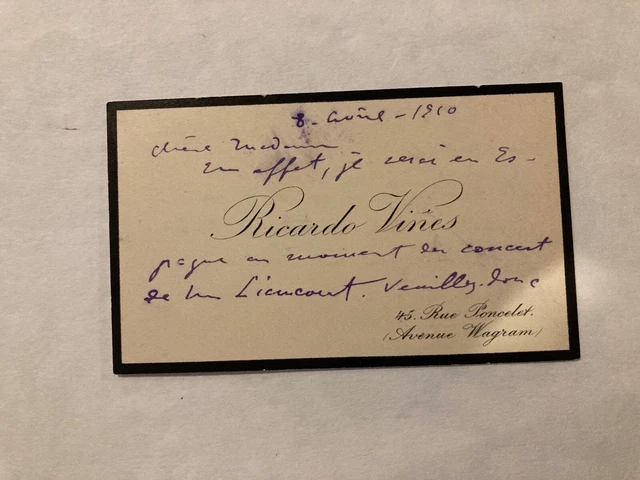 8 - avril - 1910
chère Madame
En effet, je serai en Es-
Ricardo Viñes
pagne au moment du concert
de Liancourt. Veuillez donc
45. Rue Poncelet.
(Avenue Wagram)